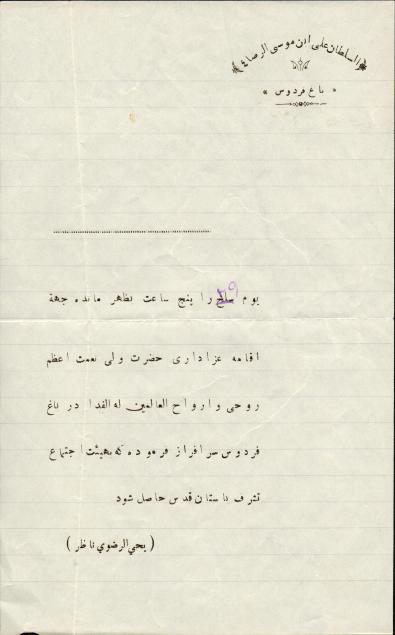 السلطان علی ابن موسی الرضا ع
« باغ فردوس »
۲۹
یوم سلخ را پنج ساعت بظهر مانده جهة
اقامه عزاداری حضرت ولی نعمت اعظم
روحی و ارواح العالمین له الفدا در باغ
فردوس سرافراز فرموده که بهیئت اجتماع
تشرف باستان قدس حاصل شود
( یحی الرضوی ناظر )